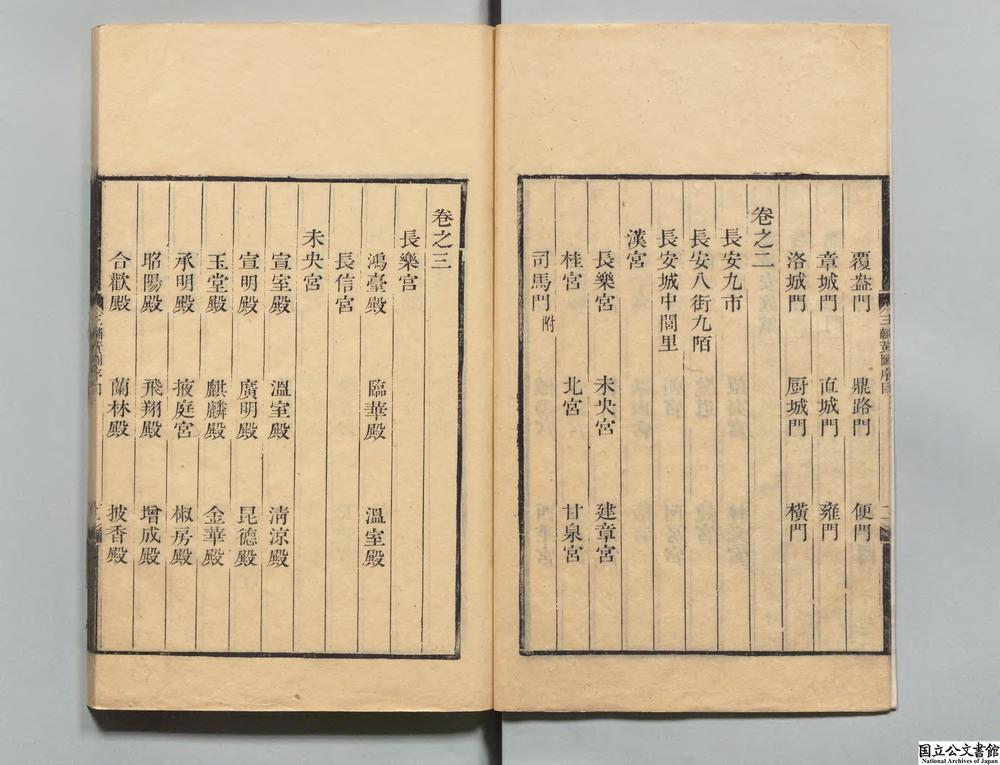 覆盎門 鼎路門 便門
章城門 直城門 雍門
洛城門 厨城門 橫門
卷之二
長安九市
長安八街九陌
長安城中閭里
漢宮
長樂宮 未央宮 建章宮
桂宮 北宮 甘泉宮
司馬門附
卷之三
長樂宮
鴻臺殿 臨華殿 溫室殿
長信宮
未央宮
宣室殿 溫室殿 清涼殿
宣明殿 廣明殿 昆德殿
玉堂殿 麒麟殿 金華殿
承明殿 掖庭宮 椒房殿
昭陽殿 飛翔殿 增成殿
合歡殿 蘭林殿 披香殿
国立公文書館
National Archives of Japan